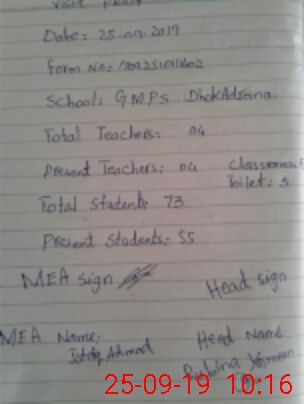 Visit Proof
Date: 25.09.2019
School: GMPS Dhok Adrana.
Total Teachers: 04
Present Teachers: 04 Classroom:
Toilet: 3
Total Students: 73
Present Students: 55
MEA sign Head sign
MEA Name: Head Name
Ishfaq Ahmad Rubina
25-09-19 10:16